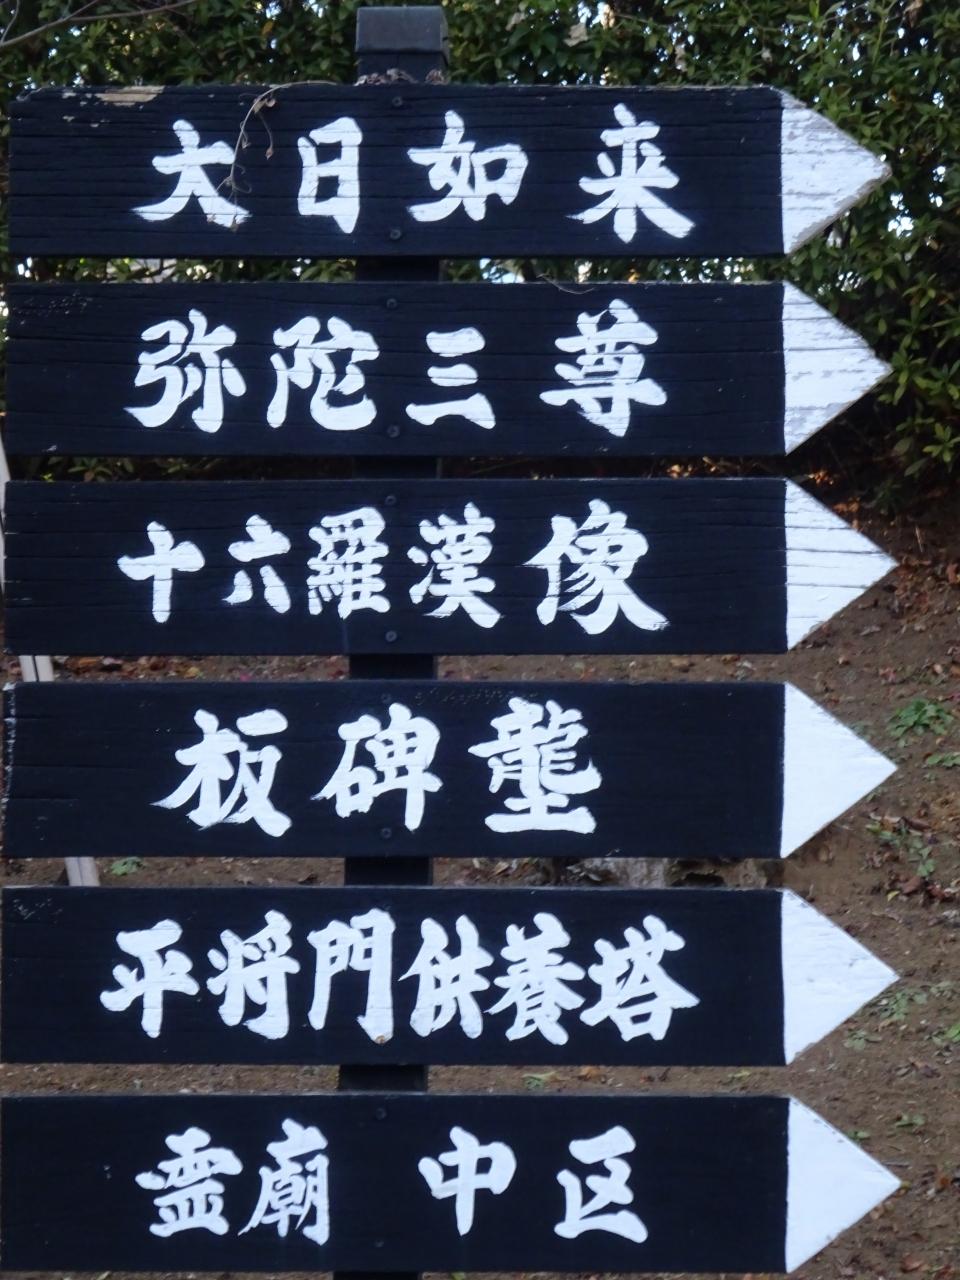 大日如来
弥陀三尊
十六羅漢像
板碑龕
平将門供養塔
霊廟 中区